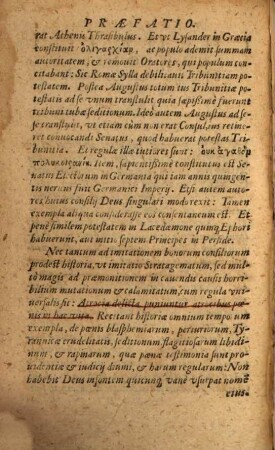 PRÆFATIO.
rat Athenis Thrasibulus. Et vt Lysander in Græcia
constituit ὀλιγαρχίαν, ac populo ademit summam
autoritatem, & remouit Oratores, qui populum con-
citabant: Sic Romæ Sylla debilitauit Tribunitiam po-
testatem. Postea Augustus totum ius Tribunitiæ po-
testatis ad se vnum transtulit quia sæpissimè fuerunt
tribuni tubæ seditionum. Ideò autem Augustus ad se-
se transtulit, vt etiam cùm non erat Consul, eo retine-
ret connocandi Senatus, quod habuerat potestas Tribu-
nitia. Et regula illi tutior esset: οὐκ ἀγαθὸν
πολυκοιρανίη. Item, sapientissimè constitutus est Se-
natus Electorum in Germania qui tam annis quingen-
tis neruus fuit Germanici Imperij. Etsi autem autor
huius consilij Deus singulari modo rexit: Tamen
exempla aliqua considerasse eos consentaneum est. Et
penè similem potestatem in Lacedæmone quinq; Ephori
habuerunt, aut initio septem Principes in Perside.
Nec tantum ad imitationem bonorum consiliorum
prodest historia, vt imitatio stratagematum, sed mul-
tò magis ad præmonitionem in cauendis causis hor-
ribilium mutationum & calamitatum, cum regula vni-
uersalis sit: Atrocia delicta puniuntur atrocibus pœ-
nis in hac vita. Recitant historiæ omnium temporum
exempla, de pœnis blasphemiarum, periuriorum, Ty-
rannicæ crudelitatis, seditionum, flagitiosarum libidi-
num, & rapinarum, quæ pœnæ testimonia sunt pro-
uidentiæ & iudicij diuini, & harum regularum: Non
habebit Deus insontem quicunq; vanè vsurpat nomē
eius.